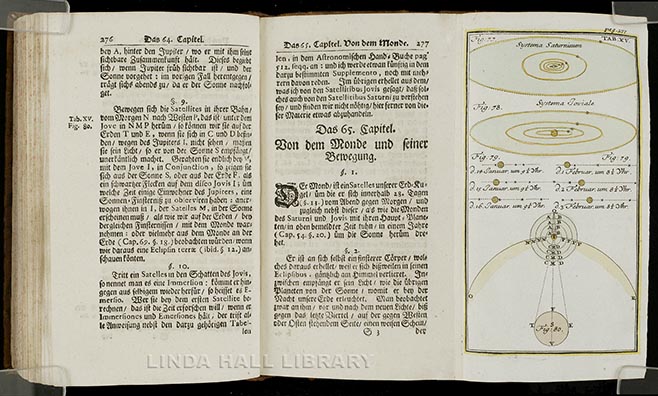 276 Das 64. Capitel.
bey A, hinter den Jupiter / wo er mit ihm seine
sichtbare Zusammenkunfft hält. Dieses begiebt
sich / wenn Jupiter früh sichtbar ist / und der
Sonne vorgehet: im vorigen Fall herentgegen /
trägt sichs abends zu / da er der Sonne nachfol-
get.
§. 9.
Tab. XV.
Fig. 80.
Bewegen sich die Satellites in ihrer Bahn /
vom Morgen N nach Westen P, das ist / unter dem
Jove in NMP herüm / so können wir sie auf der
Erden T und E, wenn sie sich in C und D befin-
den / wegen des Jupiters I. nicht sehen / massen
sie sein Licht / so er von der Sonne S empfängt /
unerkäntlich macht. Gerahten sie endlich bey
mit dem Jove I, in Conjunction, so zeigen sie
sich aus der Sonne S, oder aus der Erde F, als
ein schwartzer Flecken auf dem disco Jovis I; üm
welche Zeit einige Einwohner des Jupiters, eine
Sonnen-Finsterniß zu observiren haben: aner-
wogen ihnen in I, der Satelles M, in der Sonne
erscheinen muß / als wie wir auf der Erden / bey
dergleichen Finsternissen / mit dem Monde war-
nehmen: oder vielmehr aus dem Monde an der
Erde (Cap. 69. §. 18.) beobachten würden / wenn
wir daraus eine Eclipsin terræ (ibid. §. 12.) an-
schauen könten.
§. 10.
Tritt ein Satelles in den Schatten des Jovis,
so nennet man es eine Immersion: kömmt er hin-
gegen aus selbigem wieder herfür / so heisset es E-
mersio. Wer sie bey dem ersten Satellite be-
rechnen / das ist die Zeit erforschen will / wenn er
Immersiones und Emersiones hält, der trifft al-
le Anweisung nebst den darzu gehörigen Tabel-
len
Das 65. Capitel. Von dem Monde. 277
len, in dem Astronomischen Hand-Buche pag.
512. seqq. an: und ich werde etwan künftig in dem
darzu bestimmten Supplemento, noch mit meh-
rern davon reden. Im übrigen erhellet aus dem /
was ich von den Satellitibus Jovis gesagt / daß sol-
ches auch von den Satellitibus Saturni zu verstehen
sey / und finden wir nicht nöhtig / hier ferner von die-
ser Materie etwas abzuhandeln.
Das 65. Capitel.
Von dem Monde und seiner
Bewegung.
§. 1.
DEr Mond / ist ein Satelles unserer Erd-Ku-
gel / üm die er sich innerhalb 28. Tagen
(§. 11.) vom Abend gegen Morgen / und
zugleich nebst dieser / als wie die Monden
des Saturni und Jovis mit ihren Haupt-Plane-
ten / in oben bemeldter Zeit tuhn / in einem Jahre
(Cap. 54. §. 20.) üm die Sonne herüm dre-
het.
§. 2.
Er ist an sich selbst ein finsterer Cörper / wel-
ches daraus erhellet / weil er sich bißweilen in seinen
Eclipsibus, gäntzlich am Himmel verlieret. In-
zwischen empfängt er sein Licht / wie die übrigen
Planeten von der Sonne / womit er bey der
Nacht unsere Erde erleuchtet. Man beobachtet
zwar an ihm / vor und nach dem neuen Lichte / biß
gegen das letzte Viertel / auf der gegen Westen
oder Osten stehenden Seite / einen weisen Schein /
S 3 der
Fig. 77. TAB. XV.
Systema Saturnium
Fig. 78.
Systema Joviale
Fig. 79. Fig. 79.
Fig. 80.
LINDA HALL LIBRARY